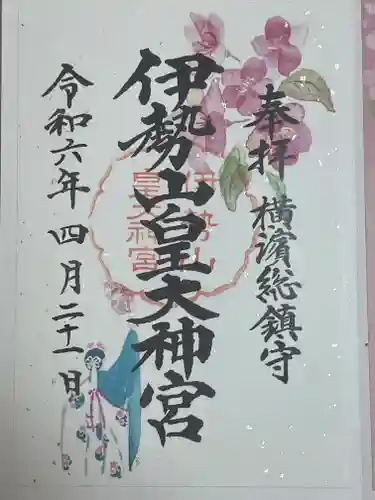 奉拝 横濵総鎮守
伊勢山皇大神宮
伊勢山
皇大神宮
令和六年四月二十一日